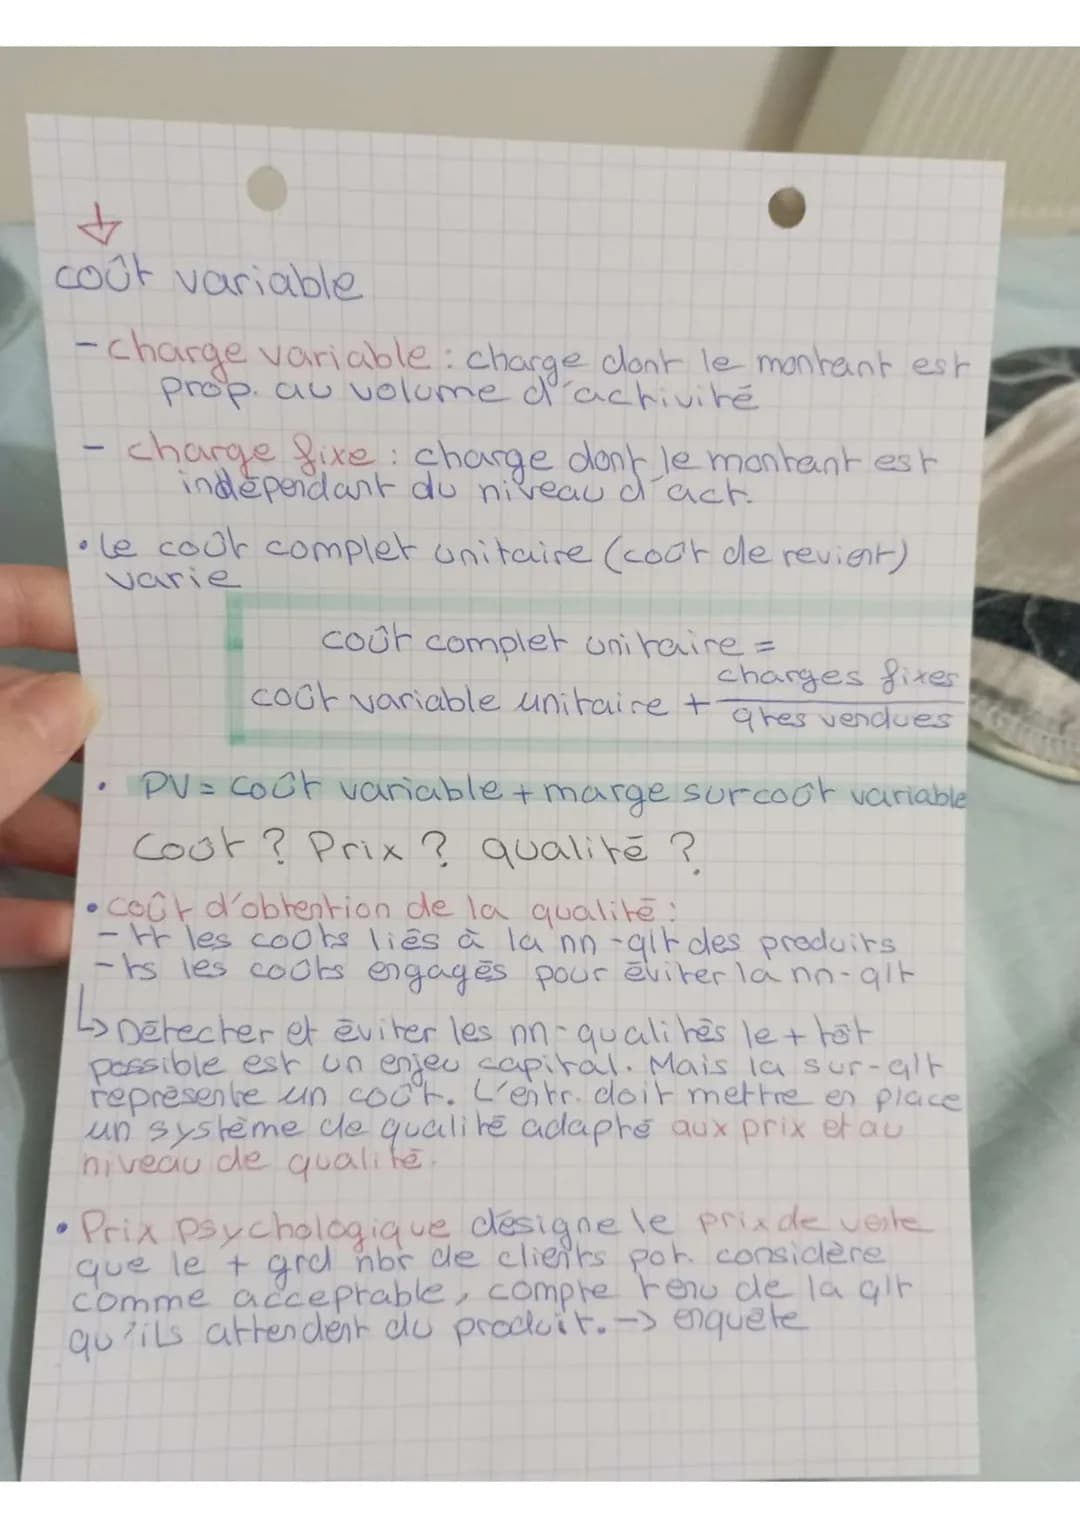 coût variable
- charge variable : charge dont le montant est
prop. au volume d'activité
- charge fixe : charge dont le montant est
indépendant du niveau d'act.
• le coût complet unitaire (coût de revient)
varie
coût complet unitaire =
coût variable unitaire + charges fixes / qtes vendues
• PV = coût variable + marge sur coût variable
Coût ? Prix ? qualité ?
• coût d'obtention de la qualité :
- tt les coûts liés à la nn-qlt des produits
- ts les coûts engagés pour éviter la nn-qlt
↳ Détecter et éviter les nn-qualités le + tôt
possible est un enjeu capital. Mais la sur-qlt
représente un coût. L'entr. doit mettre en place
un système de qualité adapté aux prix et au
niveau de qualité.
• Prix psychologique désigne le prix de vente
que le + grd nbr de clients pot. considère
comme acceptable, compte tenu de la qlt
qu'ils attendent du produit. -> enquête